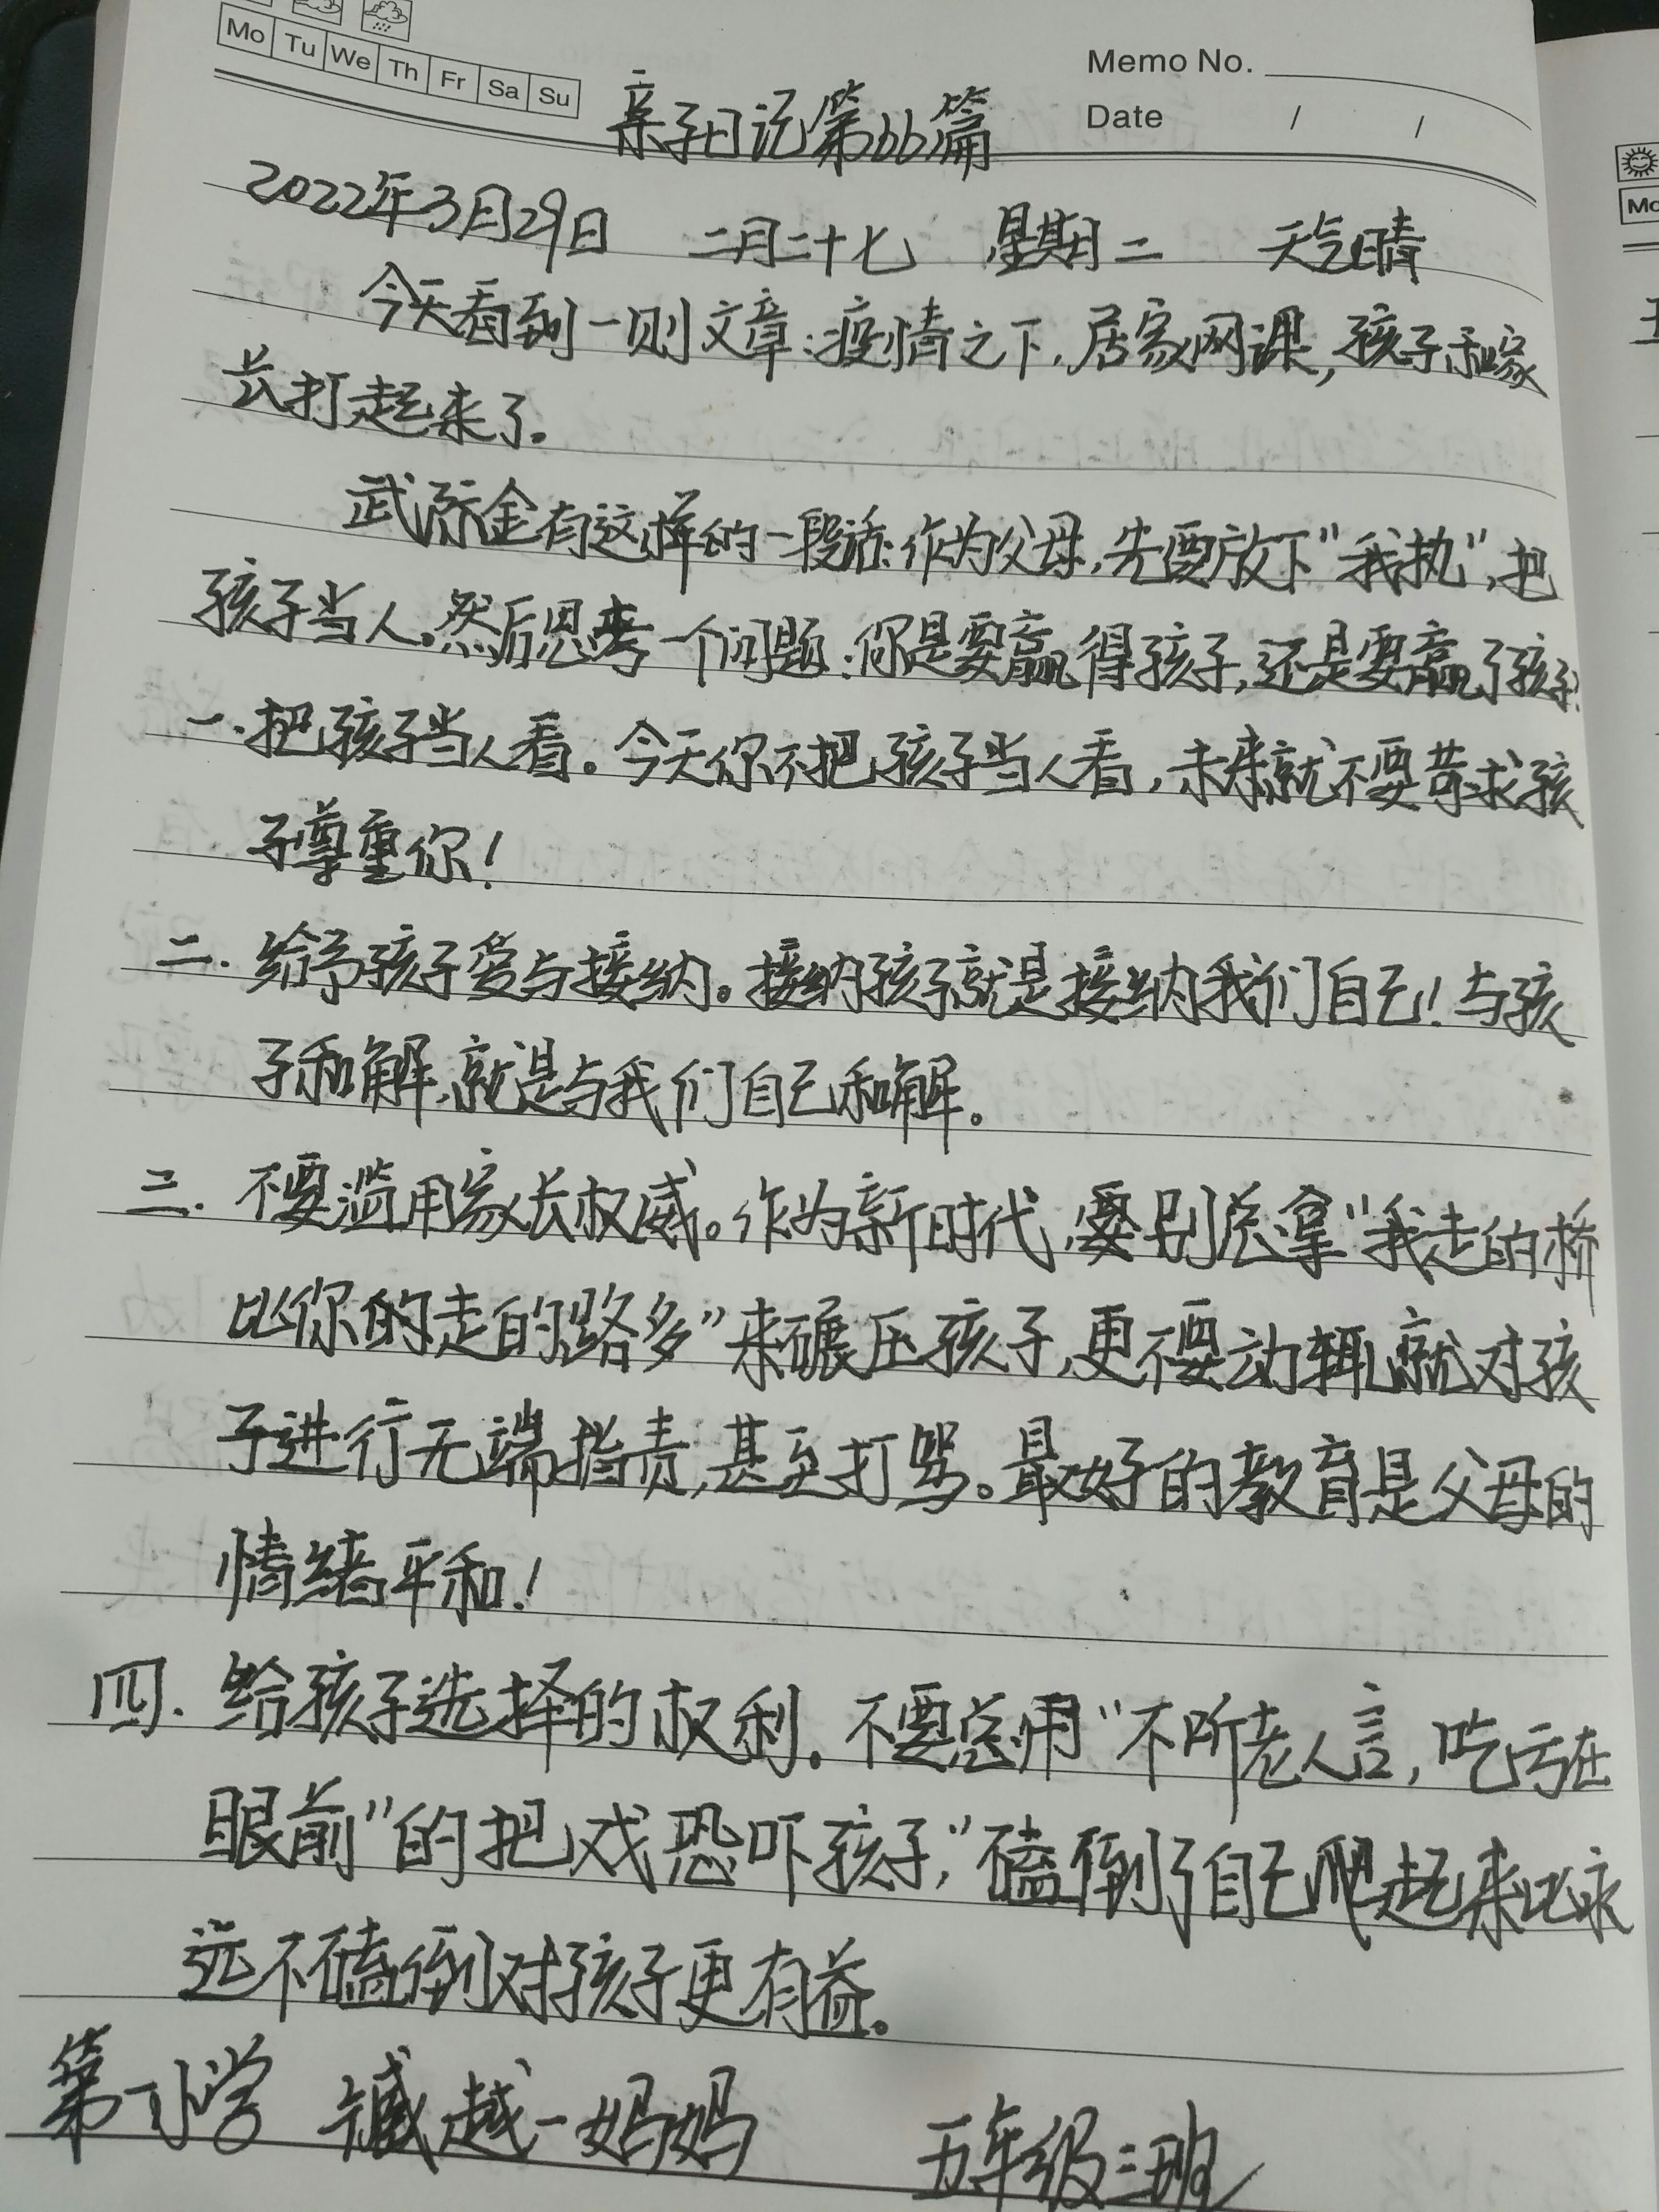 Mo Tu We Th Fr Sa Su
Memo No.
Date / /
亲子日记第66篇
2022年3月29日 二月二十七 星期二 天气晴
今天看到一则文章:疫情之下,居家网课,孩子和家
长打起来了。
武际金有这样的一段话:作为父母,先要放下“我执”,把
孩子当人。然后思考一个问题:你是要赢得孩子,还是要赢了孩子?
一.把孩子当人看。今天你不把孩子当人看,未来就不要苛求孩
子尊重你!
二.给予孩子爱与接纳。接纳孩子就是接纳我们自己!与孩
子和解,就是与我们自己和解。
三.不要滥用家长权威。作为新时代,要别总拿“我走的桥
比你的走的路多”来碾压孩子,更不要动辄就对孩
子进行无端指责,甚至打骂。最好的教育是父母的
情绪平和!
四.给孩子选择的权利。不要总用“不听老人言,吃亏在
眼前”的把戏恐吓孩子,“磕倒了自己爬起来比永
远不磕倒对孩子更有益。
第一小学 臧越一妈妈 五年级三班
Mo